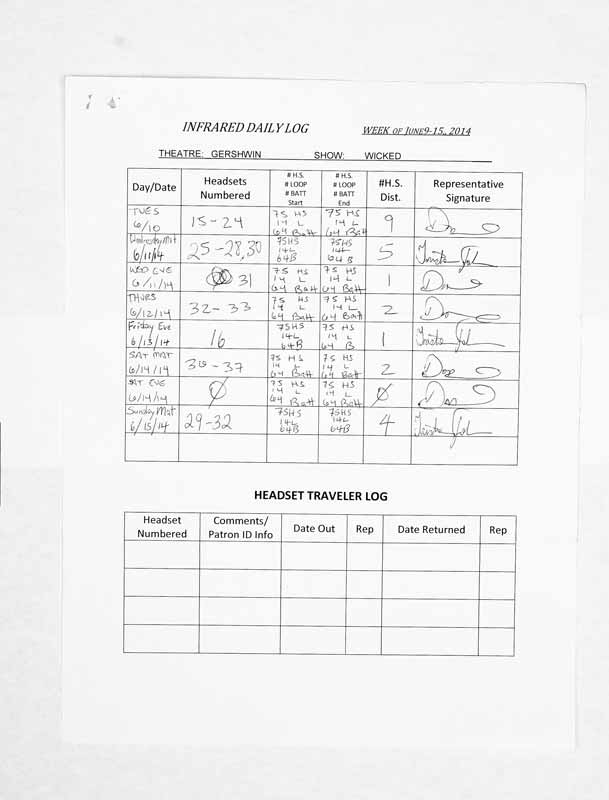 INFRARED DAILY LOG
WEEK OF JUNE9-15, 2014
THEATRE: GERSHWIN SHOW: WICKED
Day/Date
Headsets Numbered
# H.S. # LOOP # BATT Start
# H.S. # LOOP # BATT End
#H.S. Dist.
Representative Signature
TUES 6/10
15-24
75 HS 14 L 64 Batt
75 HS 14 L 64 Batt
9
Wednesday Mat 6/11/14
25-28,30
75HS 14L 64B
75HS 14L 64 B
5
WED EVE 6/11/14
31
75 HS 14 L 64 Batt
75 HS 14 L 64 Batt
1
THURS 6/12/14
32-33
75 HS 14 L 64 Batt
75 HS 14 L 64 Batt
2
Friday Eve 6/13/14
16
75HS 14L 64B
75 HS 14 L 64 B
1
SAT MAT 6/14/14
36-37
75 HS 14 L 64 Batt
75 HS 14 L 64 Batt
2
SAT EVE 6/14/14
Ø
75 HS 14 L 64 Batt
75 HS 14 L 64 Batt
Ø
Sunday Mat 6/15/14
29-32
75HS 14L 64B
75HS 14L 64B
4
HEADSET TRAVELER LOG
Headset Numbered
Comments/ Patron ID Info
Date Out
Rep
Date Returned
Rep